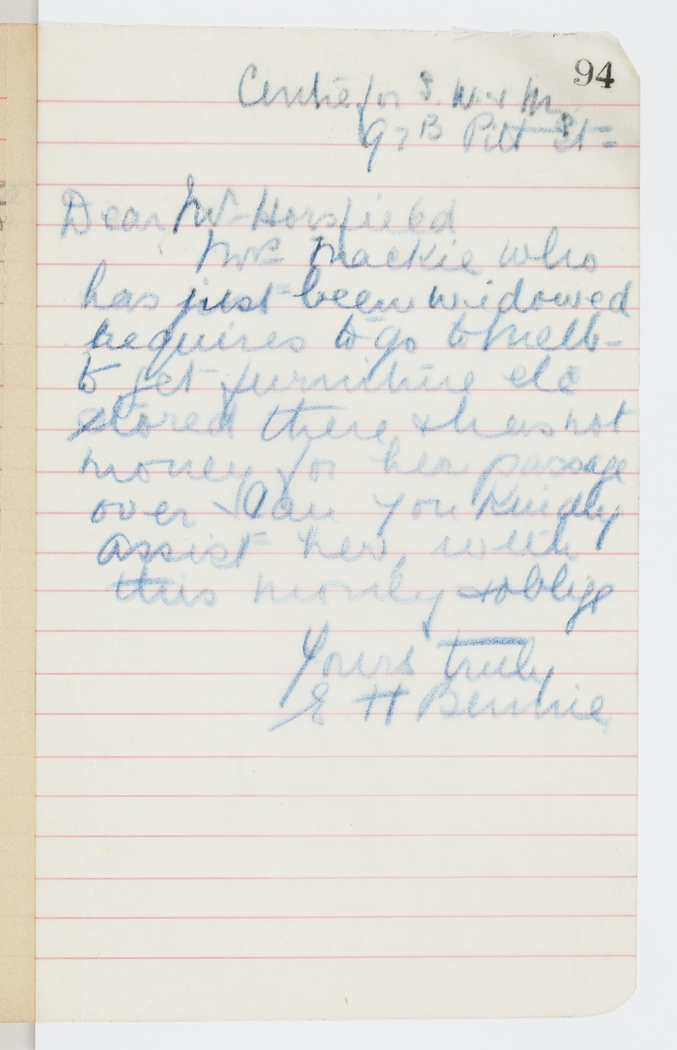 94
Centre for S. W. & M.
97B Pitt St =
Dear Mr Horsfield
Mrs Mackie who
has just been widowed
requires to go to Melb-
to get furniture etc
stored there & has not
money for her passage
over. Can you kindly
assist her, with
this money & oblige
Yours truly
E H Bennie